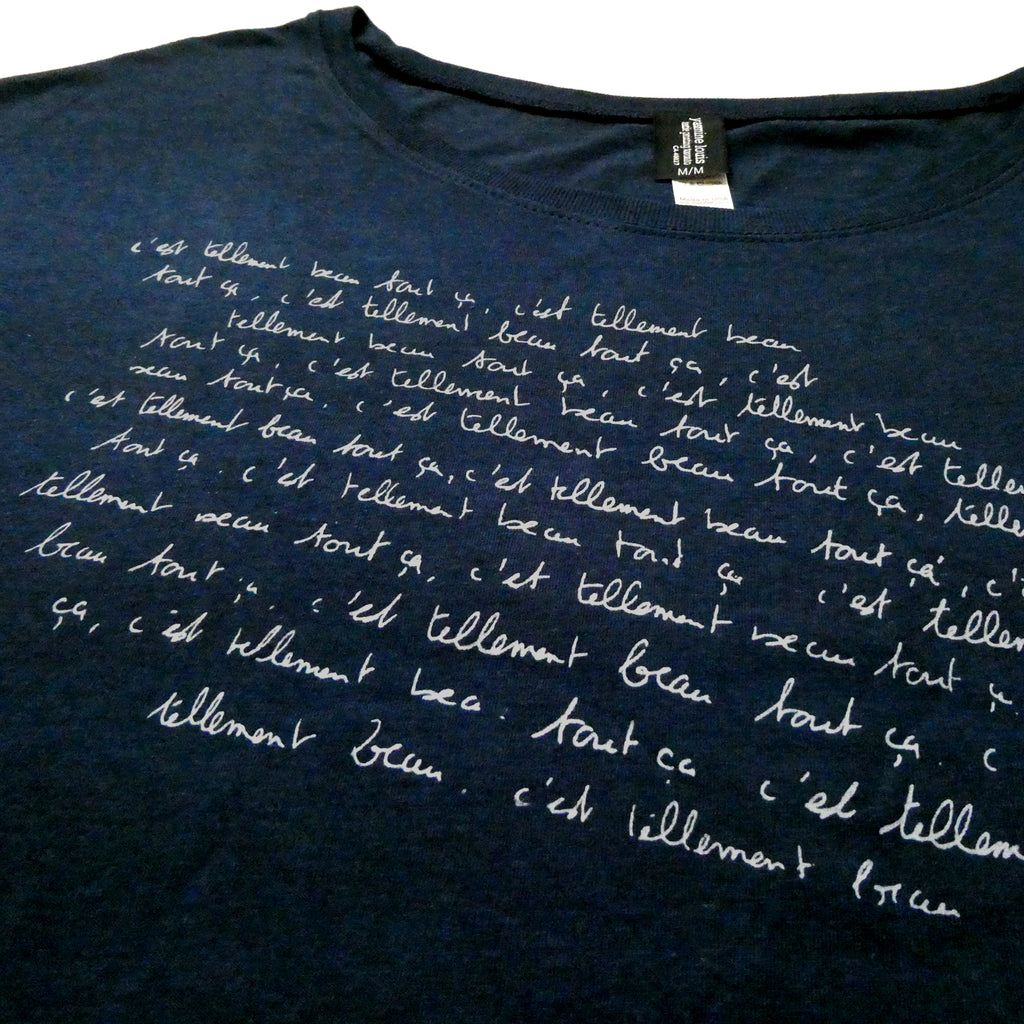 yasmine louis
M/M
c'est tellement beau tout ça, c'est tellement beau
tout ça, c'est tellement beau tout ça, c'est
tellement beau tout ça, c'est tellement beau
tout ça, c'est tellement beau tout ça, c'est telle
beau tout ça. c'est tellement beau tout ça, telle
c'est tellement beau tout ça, c'est tellement beau tout ça, c'
tout ça. c'est tellement beau tout ça c'est tellem
tellement beau tout ça, c'est tellement beau tout ça.
beau tout ça. c'est tellement beau tout ça. c
ça, c'est tellement beau. tout ça c'est tellem
tellement beau. c'est tellement beau